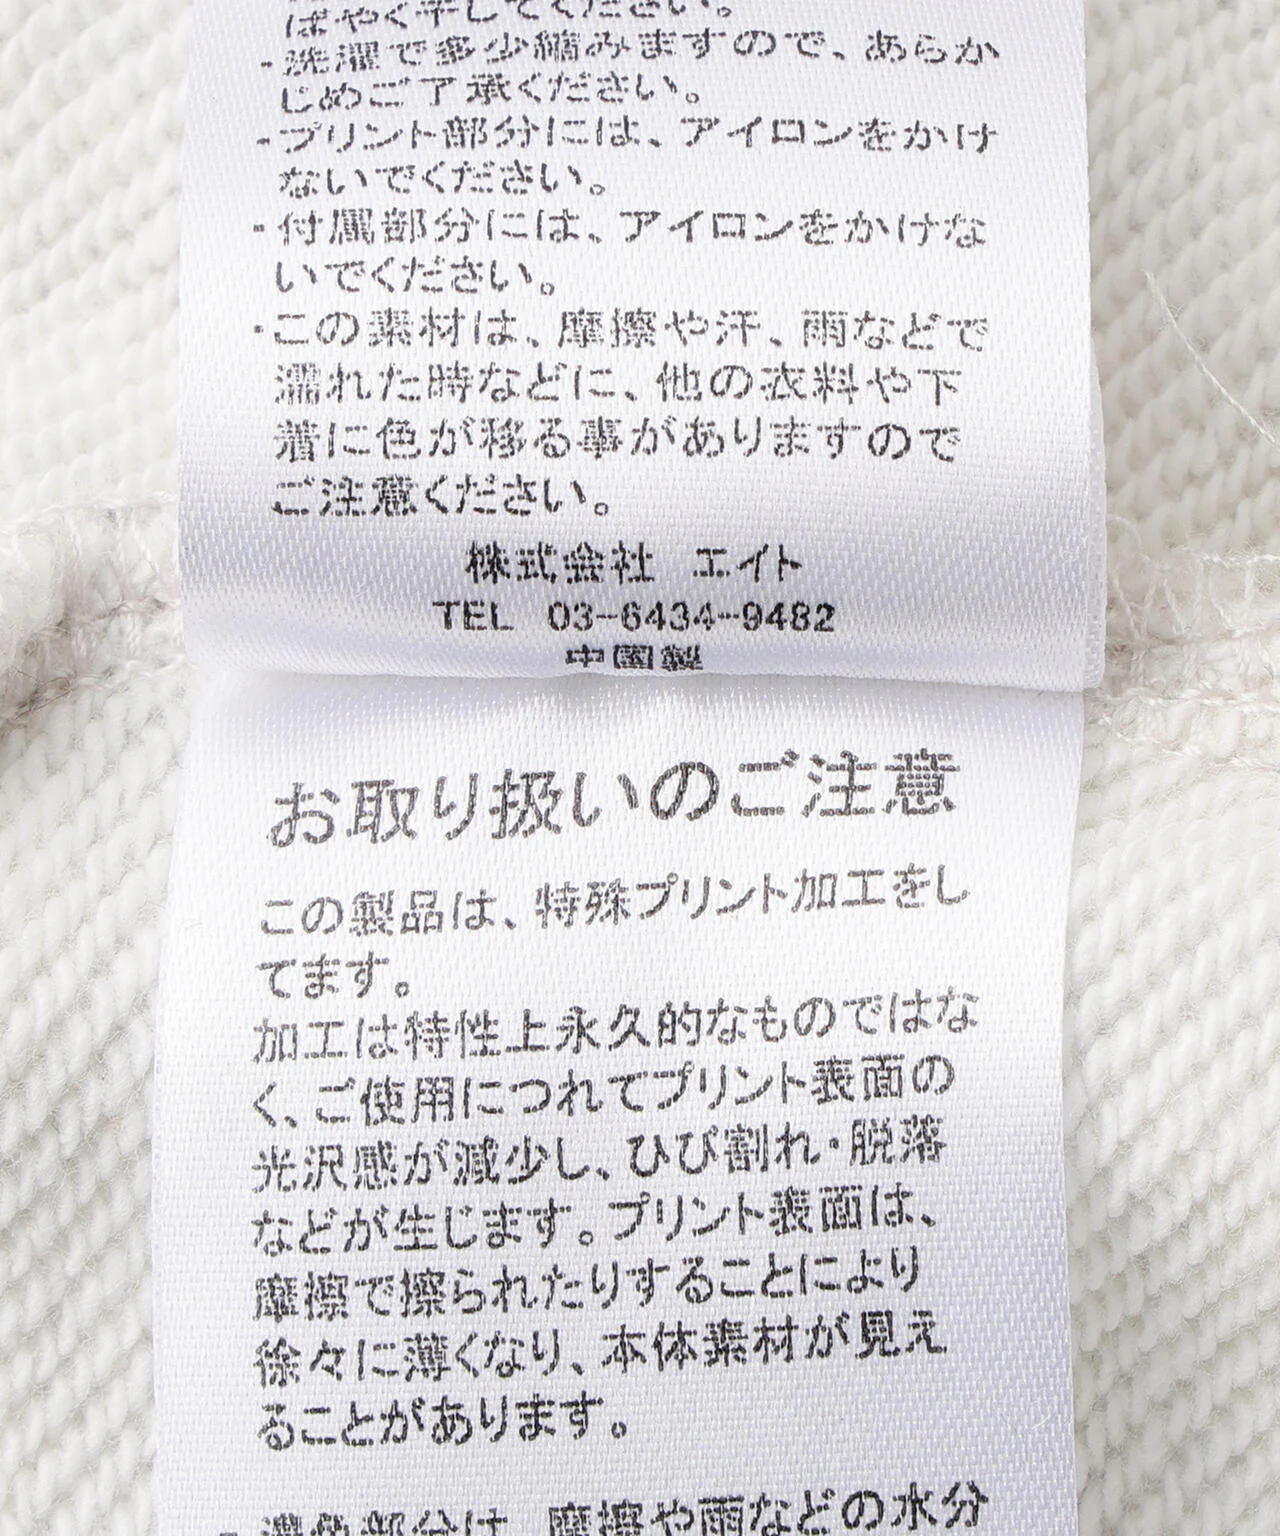 ばやく干してください。
-洗濯で多少縮みますので、あらか
じめご了承ください。
-プリント部分には、アイロンをかけ
ないでください。
-付属部分には、アイロンをかけな
いでください。
・この素材は、摩擦や汗、雨などで
濡れた時などに、他の衣料や下
着に色が移る事がありますので
ご注意ください。
株式会社 エイト
TEL 03-6434-9482
中国製
お取り扱いのご注意
この製品は、特殊プリント加工をし
てます。
加工は特性上永久的なものではな
く、ご使用につれてプリント表面の
光沢感が減少し、ひび割れ・脱落
などが生じます。プリント表面は、
摩擦で擦られたりすることにより
徐々に薄くなり、本体素材が見え
ることがあります。
-濃色部分は、摩擦や雨などの水分